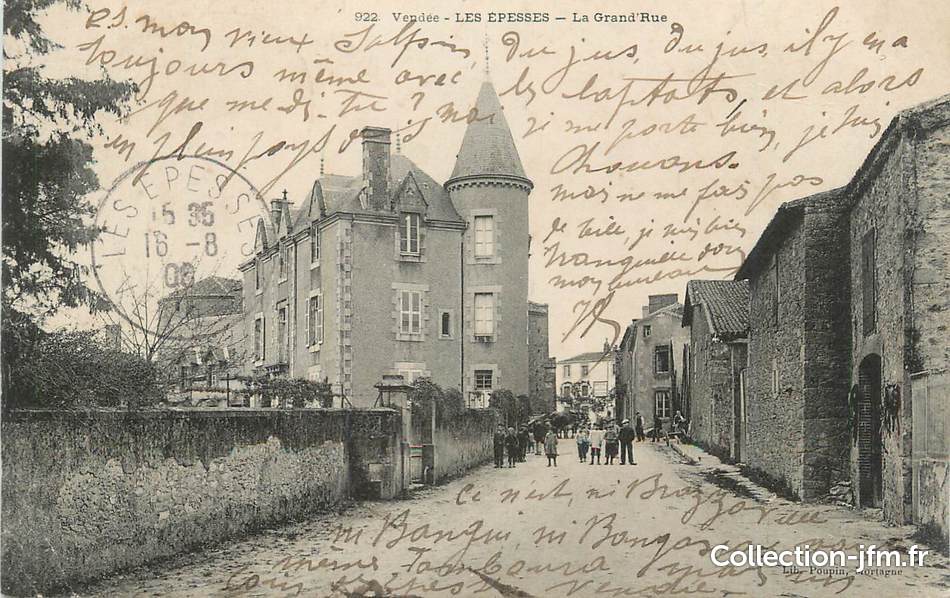 922. Vendée - LES ÉPESSES - La Grand'Rue
es. mon vieux Salpin, Du jus, du jus, il y en a
toujours même avec les captats et alors
que me dis tu? moi je me porte bien, je suis
en plein pays des
Chouans.
mais ne me fais pas
de bile, je suis bien
tranquille dans
mon bureau
LES EPESSES
15 35
16 - 8
08
Ce n'est, ni Brazzaville
ni Bangui, ni Bangasso, ni
même Tamboura mais
Vendée
Collection-jfm.fr
Lib. Poupin, Mortagne